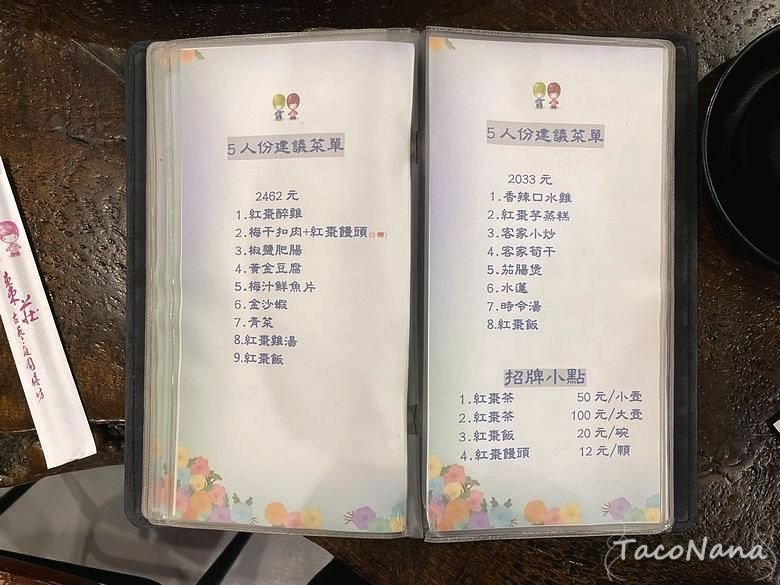 5人份建議菜單
2462 元
1.紅棗醉雞
2.梅干扣肉+紅棗饅頭(5顆)
3.椒鹽肥腸
4.黃金豆腐
5.梅汁鮮魚片
6.金沙蝦
7.青菜
8.紅棗雞湯
9.紅棗飯
5人份建議菜單
2033 元
1.香辣口水雞
2.紅棗芋蒸糕
3.客家小炒
4.客家筍干
5.茄腸煲
6.水蓮
7.時令湯
8.紅棗飯
招牌小點
1.紅棗茶 50 元/小壺
2.紅棗茶 100 元/大壺
3.紅棗飯 20 元/碗
4.紅棗饅頭 12 元/顆
棗莊
古藝庭園膳坊
TacoNana